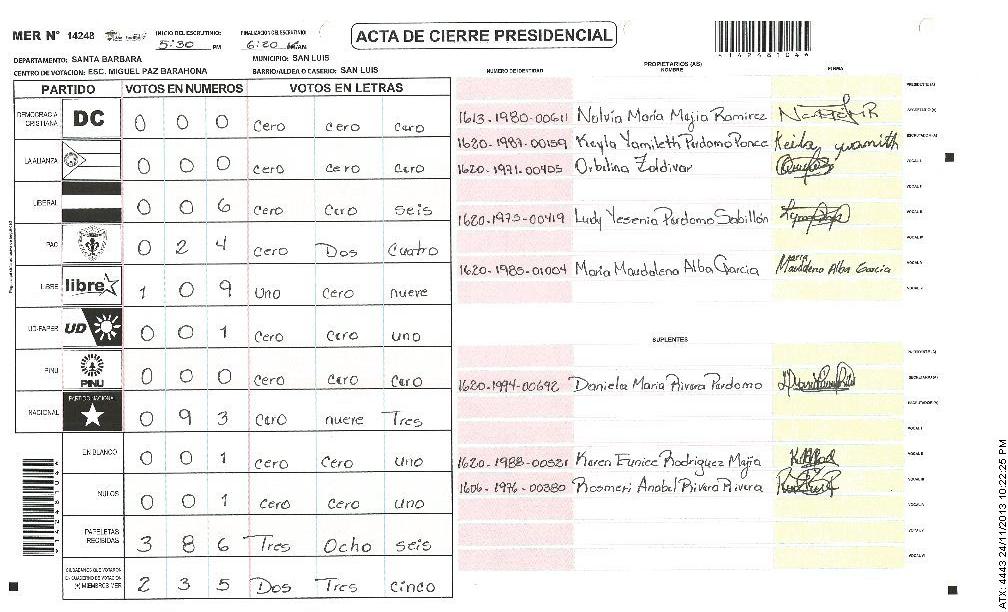 MER N° 14248 INICIO DEL ESCRUTINIO: 5:30 PM FINALIZACION DEL ESCRUTINIO: 6:20 ACTA DE CIERRE PRESIDENCIAL
DEPARTAMENTO: SANTA BARBARA MUNICIPIO: SAN LUIS
CENTRO DE VOTACION: ESC. MIGUEL PAZ BARAHONA BARRIO/ALDEA O CASERIO: SAN LUIS
PARTIDO VOTOS EN NUMEROS VOTOS EN LETRAS
DEMOCRACIA CRISTIANA DC 0 0 0 cero cero cero
LA ALIANZA 0 0 0 cero cero cero
LIBERAL 0 0 6 cero cero seis
PAC 0 2 4 cero Dos Cuatro
LIBRE libre 1 0 9 Uno cero nueve
UD-FAPER UD 0 0 1 cero cero uno
PINU PINU 0 0 0 cero cero cero
NACIONAL PARTIDO NACIONAL 0 9 3 cero nueve Tres
EN BLANCO 0 0 1 cero cero uno
NULOS 0 0 1 cero cero uno
PAPELETAS RECIBIDAS 3 8 6 Tres Ocho seis
CIUDADANOS QUE VOTARON EN CUADERNO DE VOTACION (+) MIEMBROS MER 2 3 5 Dos Tres cinco
PROPIETARIOS (AS)
NUMERO DE IDENTIDAD NOMBRE FIRMA
PRESIDENTE (A)
1613-1980-00611 Nolvia Maria Mejia Ramirez SECRETARIO (A)
1620-1987-00159 Keyla Yamileth Perdomo Ponce Keila ESCRUTADOR (A)
1620-1971-00405 Orbelina Zaldivar VOCAL I
VOCAL II
1620-1975-00419 Ludy Yesenia Perdomo Sabillón
1620-1985-01004 Maria Magdalena Alba Garcia Maria Magdalena Alba Garcia
SUPLENTES
1620-1994-00692 Daniela Maria Rivera Perdomo SECRETARIO (A)
1620-1988-00521 Karen Eunice Rodriguez Mejia
1606-1976-00380 Rosmeri Anabel Rivera Rivera
ATX: 4443 24/11/2013 10:22:25 PM